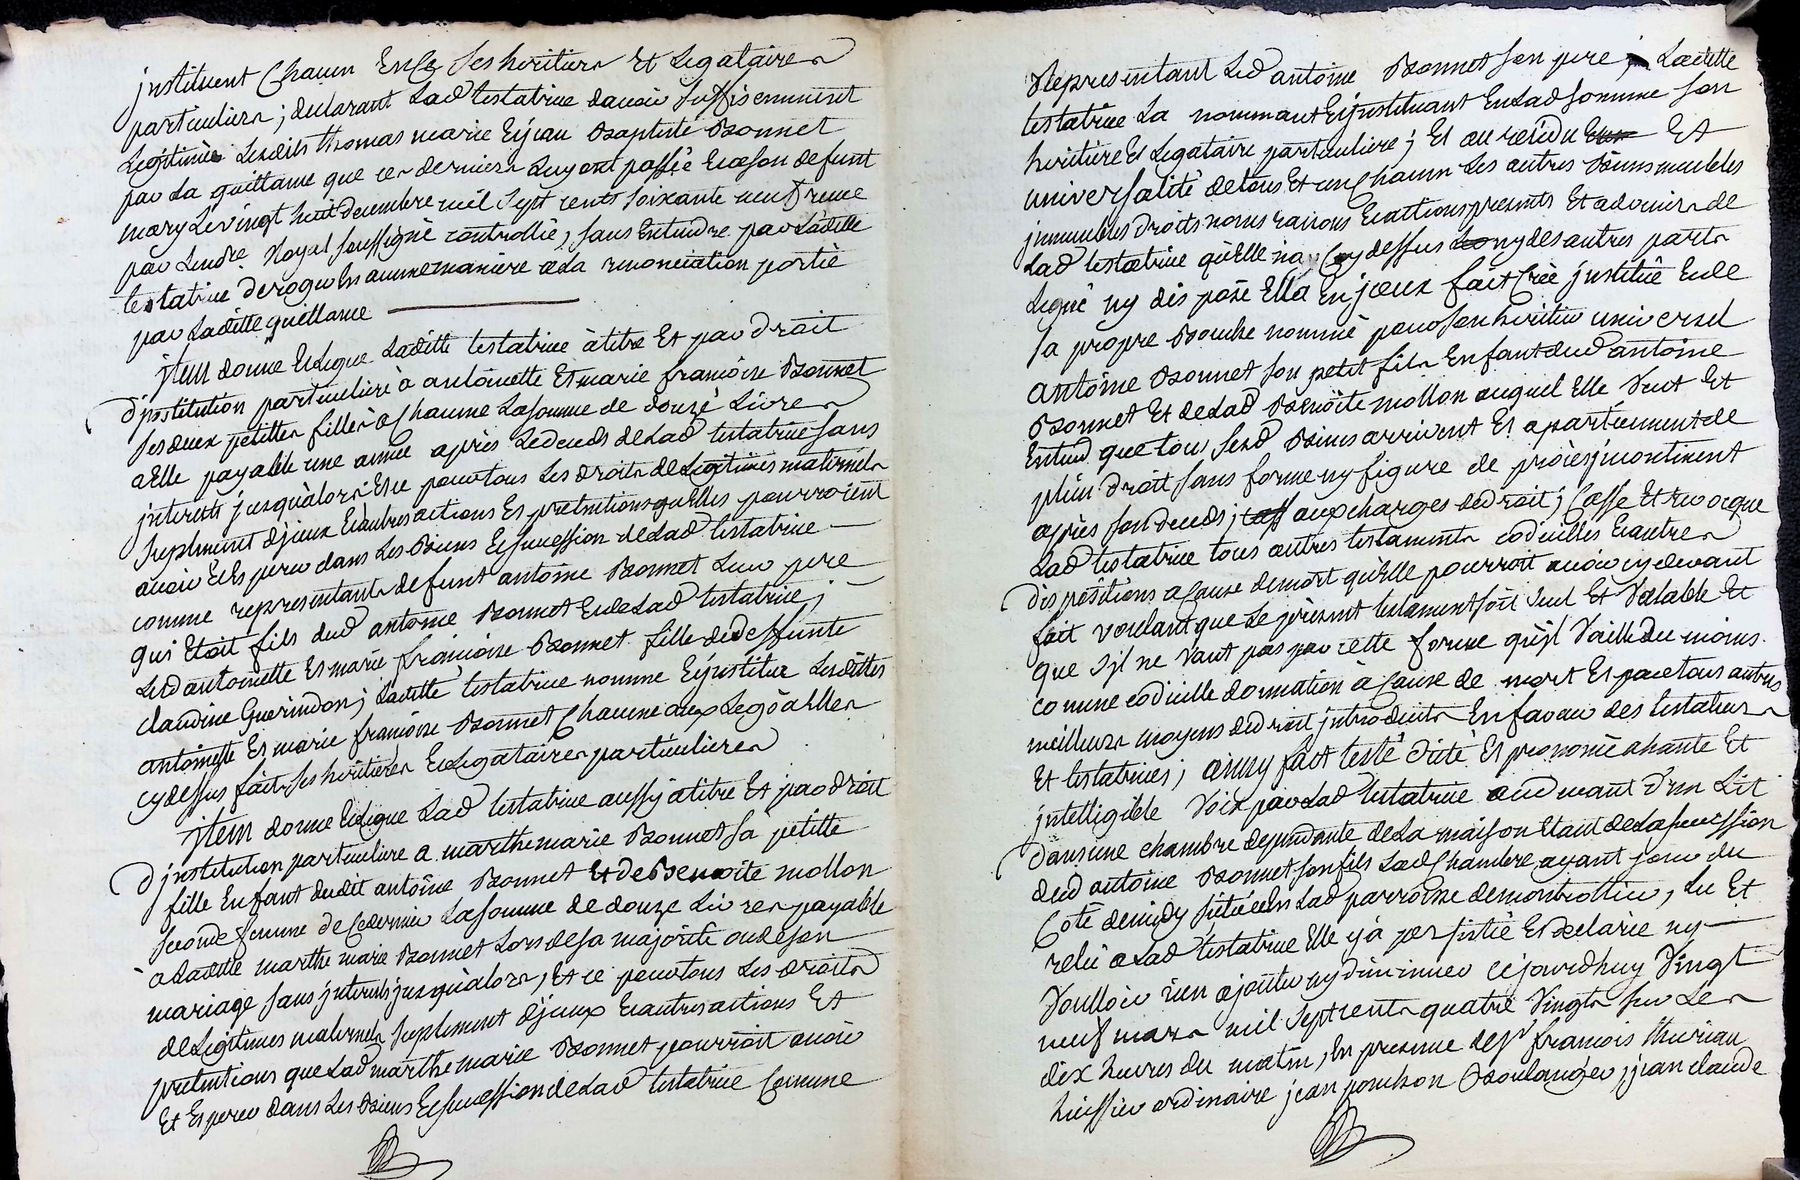 jnstituent Chacun En Ce Ses heritiers Et Legataires
particuliers; declarant Lad testatrice davoir Suffisemment
Legitimés Lesdits thomas marie Et jean Baptiste Bonnet
par La quittance que ces derniers Luy ont passée Et a Son defunt
mary Le vingt huit decembre mil Sept cents Soixante neuf reçue
par Lendre Noyal Soussigné controllée, Sans Entendre par Laditte
testatrice deroger En aucune maniere a La renonciation portée
par Laditte quittance
jtem donne Et Legue Laditte testatrice à titre Et par droit
D'jnstitution particuliere à antoinette Et marie francoise Bonnet
Ses deux petittes filles à Chacune La Somme de douze Livres
a Elle payable une année après Le deceds de Lad testatrice Sans
jnterests jusqu'alors Et ce pour tous Les droits de Legitimes maternels
Supplement d'jceux Et autres actions Et pretentions qu'Elles pourroient
avoir Et Esperer dans Les Biens Et Succession de Lad testatrice
comme representants defunt antoine Bonnet Leur pere
qui Etoit fils dud antoine Bonnet Et de Lad testatrice;
Lesd antoinette Et marie francoise Bonnet fille de deffunte
claudine Guerindon; Laditte testatrice nomme Et jnstitue Lesdittes
antoinette Et marie francoise Bonnet Chacune aux Legs a Elles
cy dessus fait Ses heritieres Et Legataires particulieres
jtem donne Et Legue Lad testatrice aussy a titre Et par droit
D jnstitution particuliere a marthe marie Bonnet Sa petitte
fille Enfant dudit antoine Bonnet Et de Benoite mollon
Seconde femme de Ce dernier La Somme de douze Livres payable
à Laditte marthe marie Bonnet Lors de Sa majorité ou de Son
mariage Sans jnterests jusqu'alors, Et ce pour tous Les droits
de Legitimes maternels Supplement d'jceux Et autres actions Et
pretentions que Lad marthe marie Bonnet pourroit avoir
Et Esperer dans Les Biens Et Succession de Lad testatrice Comme
Representant Led antoine Bonnet Son pere; Laditte
testatrice La nommant Et jnstituant En Lad Somme Son
heritiere Et Legataire particuliere; Et au residu Et
universalité de tous Et un Chacun Les autres Biens meubles
jmmeubles droits noms raisons Et actions presents Et advenir de
Lad testatrice qu'Elle n'a Cy dessus ny des autres parts
Legué ny disposé Ella En jceux fait Crée jnstitué Et de
Sa propre Bouche nommé pour Son heritier universel
antoine Bonnet Son petit fils Enfant dud antoine
Bonnet Et de Lad Benoite mollon auquel Elle Veut Et
Entend que tous Sesd Biens arrivent Et apartiennent de
plein droit Sans forme ny figure de procès jncontinent
après Son deceds; aux charges de droit; Casse Et revoque
Lad testatrice tous autres testaments codicilles Et autres
Dispositions a Cause de mort qu'Elle pourroit avoir cy devant
fait voulant que Le présent testament Soit Seul Et Valable Et
que S'jl ne Vaut pas par cette forme qu'jl Vaille du moins
comme codicille donnation à Cause de mort Et par tous autres
meilleurs moyens de droit jntroduits En faveur des testateurs
Et testatrices; ainsy fait testé dicté Et prononcé a haute Et
jntelligible Voix par Lad testatrice au devant d'un Lit
Dans une chambre dependante de La maison Etant de La Succession
dud antoine Bonnet Son fils Lad Chambre ayant jour du
Coté de midy Scituée En Lad parroisse de montrottier, Lu Et
relu a Lad testatrice Elle y a persisté Et declaré ny
Voulloir rien ajoutter ny diminuer Cejourd'huy Vingt
neuf mars mil Sept cents quatre Vingts Sur Les
dix heures du matin, En presence de Sr francois thivrian
huissier ordinaire jean ponchon Boulanger, jean claude